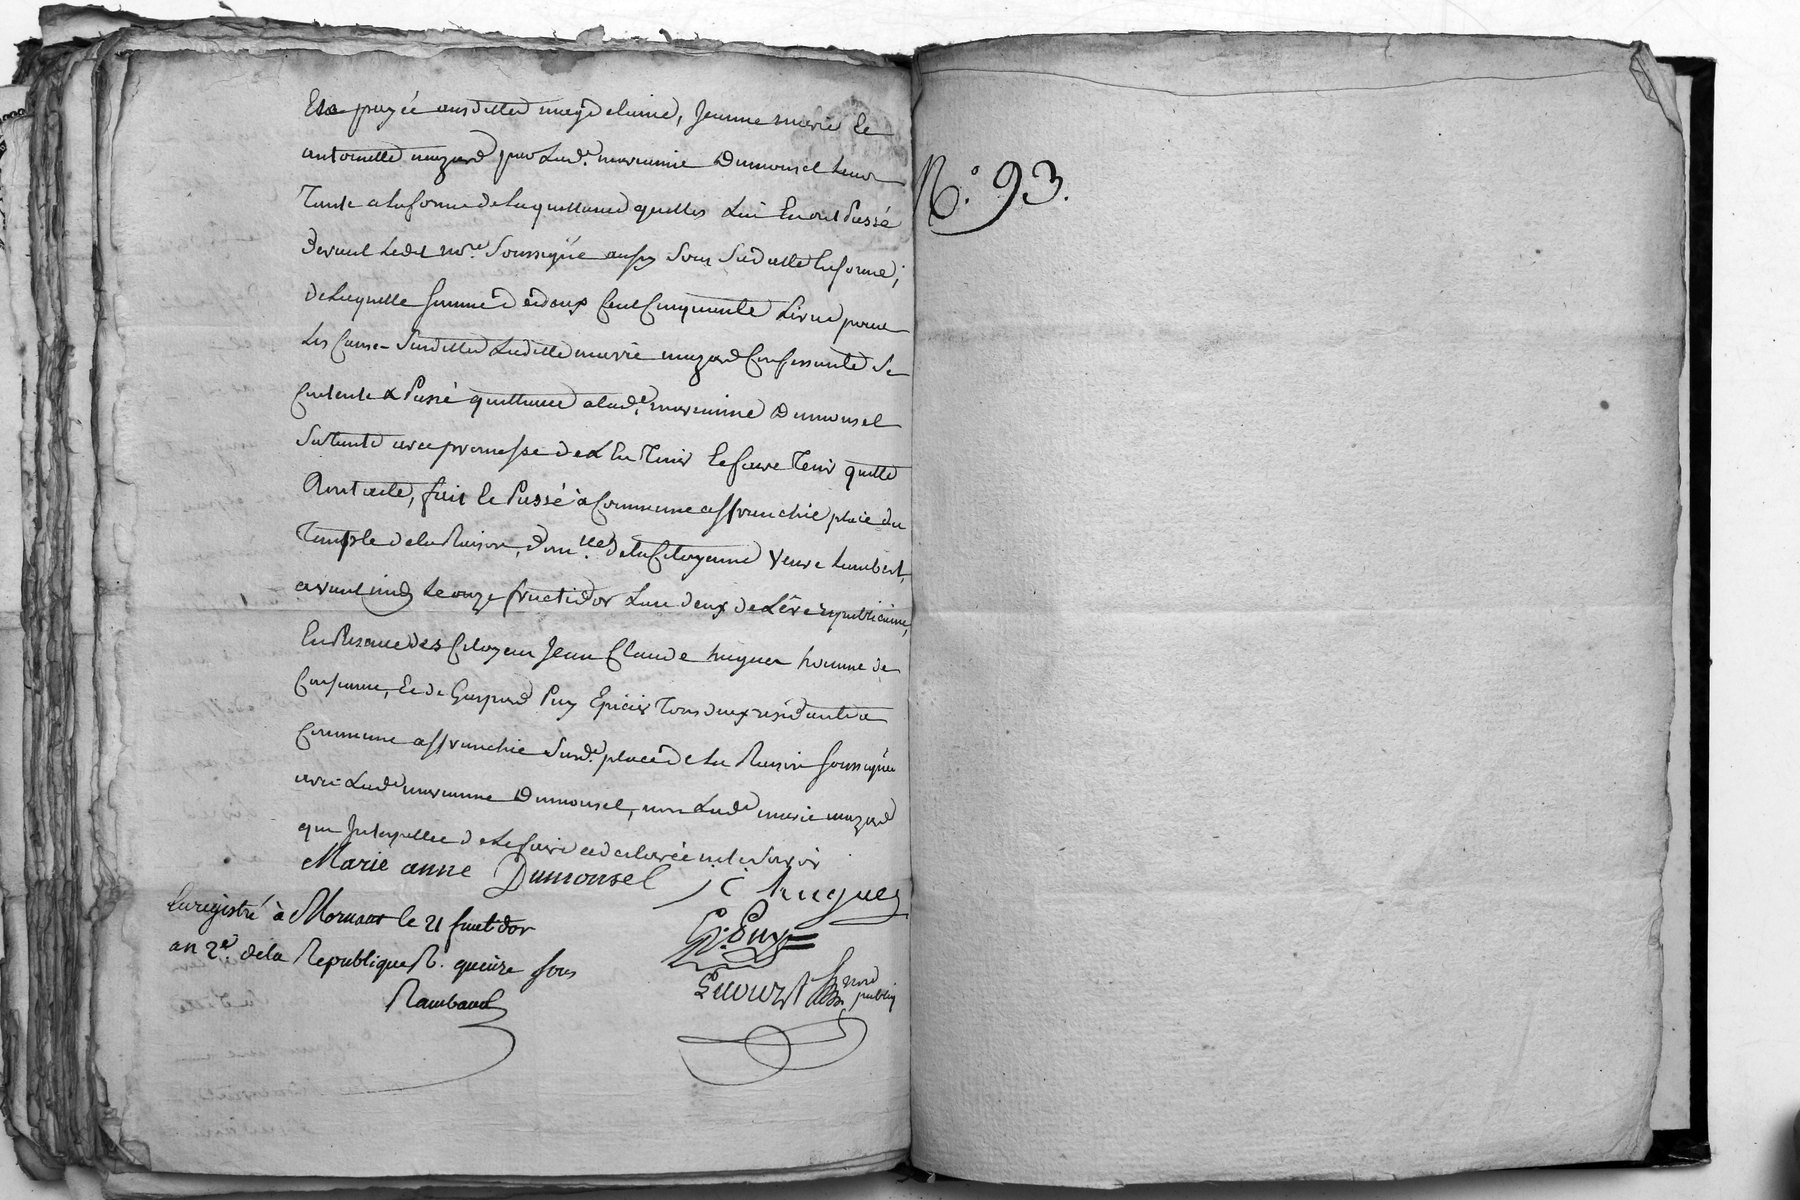 Et payée ausdittes magdelaine, Jeanne marie Et
antoinette mazard par Lade. marianne Dumonsel Leur
Tante a la forme de la quittance quelles Lui En ont Passé
devant Ledt nore. Soussigné aussy Sous Sa datte En forme;
de laquelle somme de deux Cent Cinquante Livres pour
Les Causes Susdittes Laditte marie mazard Confessante Se
Contente & Passe quittance a lade. marianne Dumonsel
Sa tante avec promesse de La Tenir Et faire Tenir quitte
Dont acte, fait Et Passé à Commune affranchie place du
Temple de la Raison, domlle de la Citoyenne Veuve Lambert,
avant midy Le onze fructidor L'an deux de L'ère republicaine,
En Presence des Citoyens Jean Claude hugues homme de
Confiance, Et de Gaspard Puy Epicier Tous deux residants a
Commune affranchie Susde. place de la Raison Soussignés
avec Lade marianne Dumonsel, non Lade marie mazard
qui Interpellée de Le faire a declarée ne le Savoir
Marie anne Dumonsel J C hugues
Enregistré à Mornant le 21 fructidor
G. Puy
an 2e. de la Republique R. quinze sous
nore public
Rambaud
N.o 93.